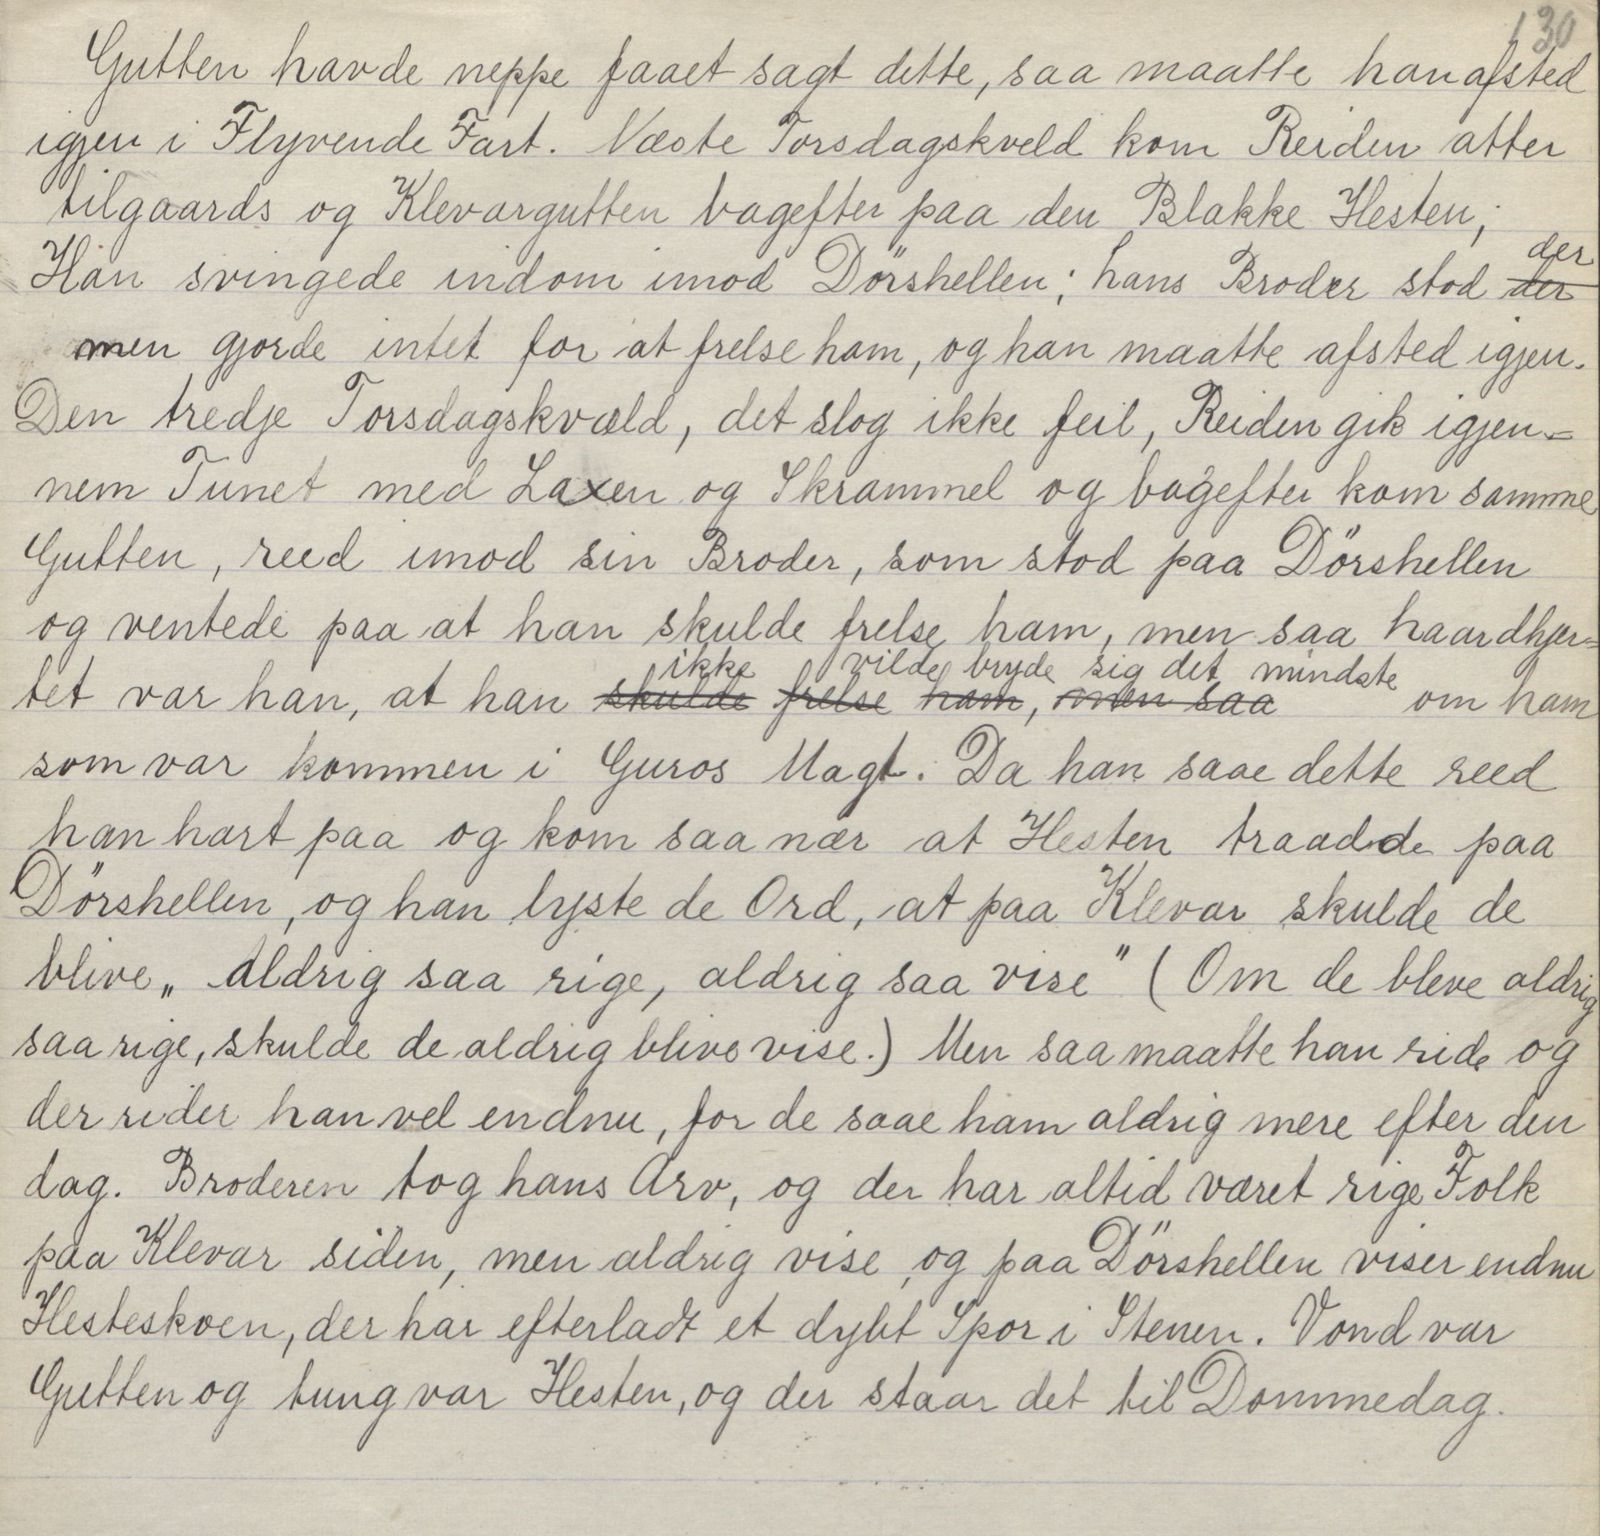 130
Gutten havde neppe faaet sagt dette, saa maatte han afsted
igjen i Flyvende Fart. Næste Torsdagskveld kom Reiden atter
tilgaards og Klevargutten bagefter paa den Blakke Hesten;
Han svingede indom imod Dörshellen; hans Broder stod der
der
men gjorde intet for at frelse ham, og han maatte afsted igjen.
Den tredje Torsdagskvæld, det slog ikke feil, Reiden gik igjen=
nem Tunet med Laxen og Skrammel og bagefter kom samme
Gutten, reed imod sin Broder, som stod paa Dörshellen
og ventede paa at han skulde frelse ham, men saa haardhjer=
ikke vilde bryde sig det mindste
tet var han, at han skulde frelse ham, men saa om ham
som var kommen i Guros Magt. Da han saae dette reed
han hart paa og kom saa nær at Hesten traadde paa
Dörshellen, og han lyste de Ord, at paa Klevar skulde de
blive „ Aldrig saa rige, aldrig saa vise" ( Om de bleve aldrig
saa rige, skulde de aldrig blive vise.) Men saa maatte han ride og
der rider han vel endnu, for de saae ham aldrig mere efter den
dag. Broderen tog hans Arv, og der har altid været rige Folk
paa Klevar siden, men aldrig vise, og paa Dörshellen viser endnu
Hesteskoen, der har efterladt et dybt Spor i Stenen. Vond var
Gutten og tung var Hesten, og der staar det til Dommedag.